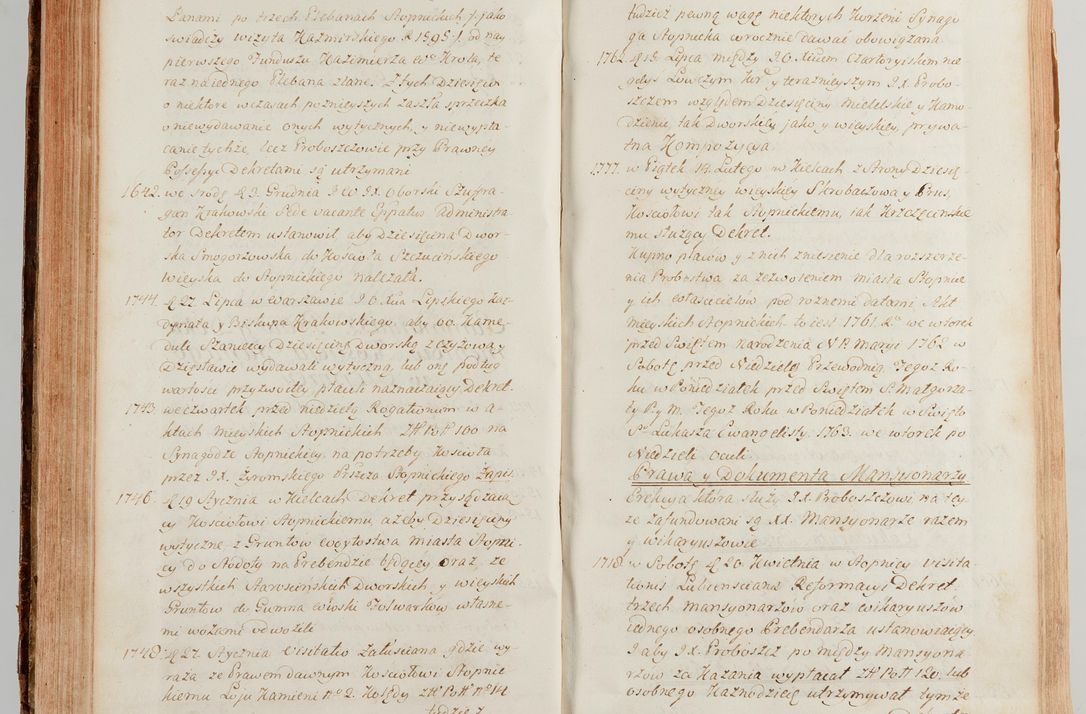 Panami po trzech Plebanach Stopnickich, jako
świadczy wizyta Kazmirskiego R 1595. 1. od nay
pierwszego Funduszu Kazimierza Wo Krola, te
raz na iednego Plebana zlane. Z tych Dziesięcin
o niektore w czasach poznieyszych zaszła sprzeczka
o niewydawanie onych wytycznych, y niewypła
canie tychże, lecz Proboszczowie przy Prawney
Possessyi Dekretami są utrzymani
1642. we srodę d 3. Grudnia J W JX. Oborski Szufra
gan Krakowski Sede vacante Administra
tor Dekretem ustanowił, aby Dziesięcina Dwor
ska Smogorzowska, do Kościoła Szczucińskiego
wieyska do Stopnickiego nalezała.
1744. d 27. Lipca w Warszawie J. O. Xcia Lipskiego Kar
dynała y Biskupa Krakowskiego, aby OO. Kame
duli Szaniecy Dziesięcinę Dworską z Czyżowa y
Dzięsławic wydawali wytyczną, lub onę podług
wartości przyzwoitą płacili naznaczaiący Dekret
1743. we czwartek przed niedzielą Rogationum w a
ktach mieyskich Stopnickich ZłPol 100 na
Synagodze Stopnickiey na potrzeby Kościoła
przez JX. Żyromskiego Prszcza Stopnickiego Zapis.
1746. d 19 Stycznia w Kielcach Dekret przysądzaią
cy Kościołowi Stopnickiemu, ażeby Dziesięciny
wytyczne z Gruntow Woytostwa miasta Stopni
cy do Stodoły na Prebendzie będącey oraz, ze
wszystkich Starościnskich Dworskich, y wieyskich
Gruntow do Gumna wioski Folwarkow własne
mi wozami odwozili
1748. d 27. Stycznia Visitatio Załusciana gdzie wy
raza ze Prawem dawnym Kościołowi Stopnic
kiemu Łoju Kamieni No 2. Kolędy ZłPoll No 14
tudzież
tudziez pewną wagę niektorych Korzeni Synago
ga Stopnicka corocznie dawać obowiązana
1762. d 15 Lipca między J. O. Xciem Czartoryiskim nie
gdys Łowczym Kor. y teraznieyszym JX. Probo
szczem względem Dziesięciny Mielelskiey y Kamo
dzienic, tak Dworskiey jako y wieyskiey, prywa
tna Kompozycya
1777. w Piątek 14. Lutego w Kielcach z Strony Dziesię
ciny wytyczney wieyskiey Skrobaczowa y Brus,
Kościołowi tak Stopnickiemu, iak Krzczęcinskie
mu służący Dekret.
Kupno placow y z nich zniesienie dla rozszerze
nia Probostwa za zezwoleniem miasta Stopnicy
y ich właścicielow pod roznemi datami Akt
mieyskich Stopnickich to iest 1761. Ro we wtorek
przed Swiętem Narodzenia N P. Maryi 1762 w
Sobotę przed Niedzielą Przewodnią Tegoz Ro
ku w Poniedziałek przed Swiętem S. Małgorza
ty P. y M. Tegoz Roku w Poniedziałek w Swięto
So Lukasza Ewangelisty. 1763. we wtorek po
Niedzieli Oculi
Prawa y Dokumenta Mansyonarzy
Erekcya ktora słuzy JX. Proboszczowi na tey
ze zafundowani są XX. Mansyonarze razem
y wikaryuszowie
1718. w Sobotę d 20. Kwietnia w Stopnicy Visita
tionis Łubienscianae Reformacys Dekret
trzech Mansyonarzow oraz wikaryuszow
iednego osobnego Prebendarza ustanowiaiący
I aby JX. Proboszcz pomiędzy Mansyona
rzow za Kazania wypłacał ZłPoll 120, lub
osobnego Kaznodzieię utrzymywał tymze